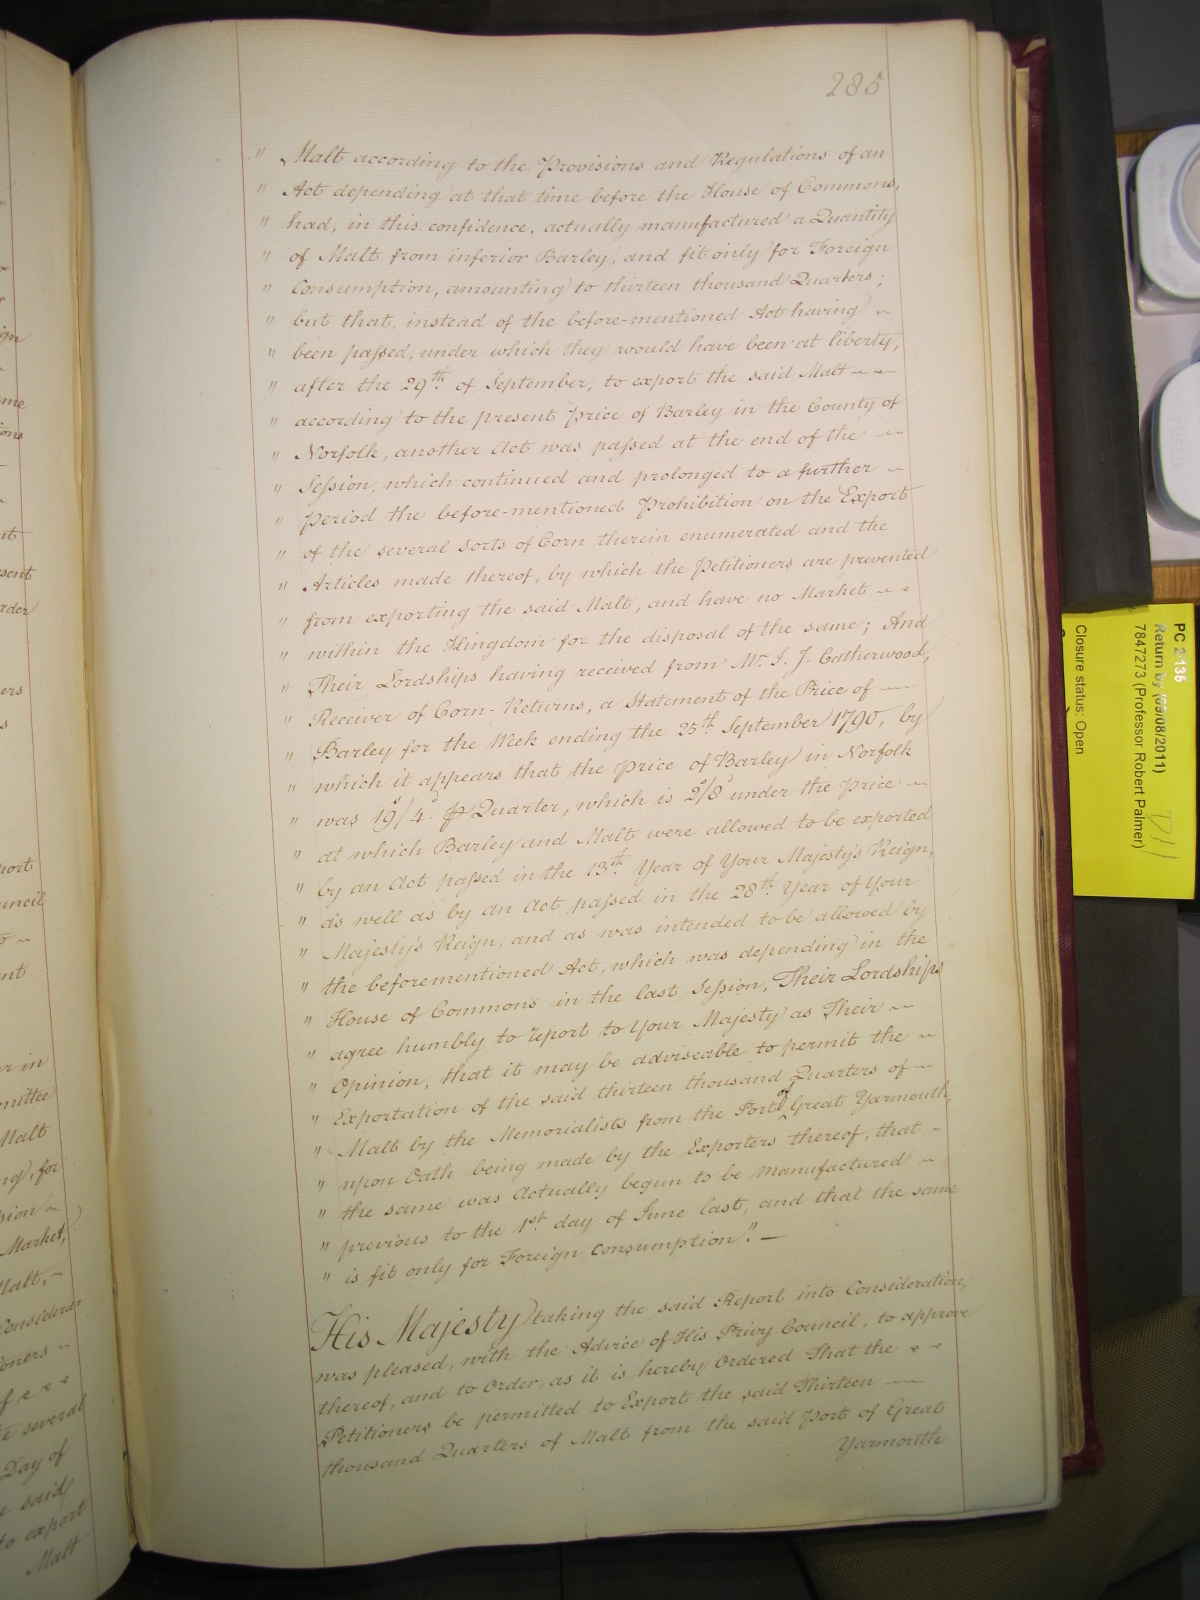 285
" Malt according to the Provisions and Regulations of an
" Act depending at that time before the House of Commons,
" had, in this confidence, actually manufactured a Quantity
" of Malt from inferior Barley, and fit only for Foreign
" Consumption, amounting to thirteen thousand Quarters;
" but that, instead of the before-mentioned Act having
" been passed, under which they would have been at liberty,
" after the 29th of September, to export the said Malt
" according to the present Price of Barley in the County of
" Norfolk, another Act was passed at the end of the
" Session, which continued and prolonged to a further
" period the before-mentioned Prohibition on the Export
" of the several sorts of Corn therein enumerated and the
" Articles made thereof, by which the Petitioners are prevented
" from exporting the said Malt, and have no Market
" within the Kingdom for the disposal of the same; And
" Their Lordships having received from Mr. I. J. Catherwood,
" Receiver of Corn-Returns, a Statement of the Price of
" Barley for the Week ending the 25th September 1790, by
" which it appears that the price of Barley in Norfolk
" was 19s/4d. ⅌ Quarter, which is 2s/8d under the Price
" at which Barley and Malt were allowed to be exported
" by an Act passed in the 13th Year of Your Majesty's Reign,
" as well as by an Act passed in the 28th Year of Your
" Majesty's Reign, and as was intended to be allowed by
" the beforementioned Act, which was depending in the
" House of Commons in the last Session, Their Lordships
" agree humbly to report to Your Majesty as Their
" Opinion, that it may be adviseable to permit the
" Exportation of the said thirteen thousand Quarters of
" Malt by the Memorialists from the Port of Great Yarmouth,
" upon Oath being made by the Exporters thereof, that
" the same was Actually begun to be manufactured
" previous to the 1st day of June last, and that the same
" is fit only for Foreign Consumption". —
His Majesty taking the said Report into Consideration,
was pleased, with the Advice of His Privy Council, to approve
thereof, and to Order, as it is hereby Ordered That the
Petitioners be permitted to Export the said Thirteen
thousand Quarters of Malt from the said Port of Great
Yarmouth
PC 2 135
Return by (05/08/2011)
7847273 (Professor Robert Palmer)
Closure status: Open
D11